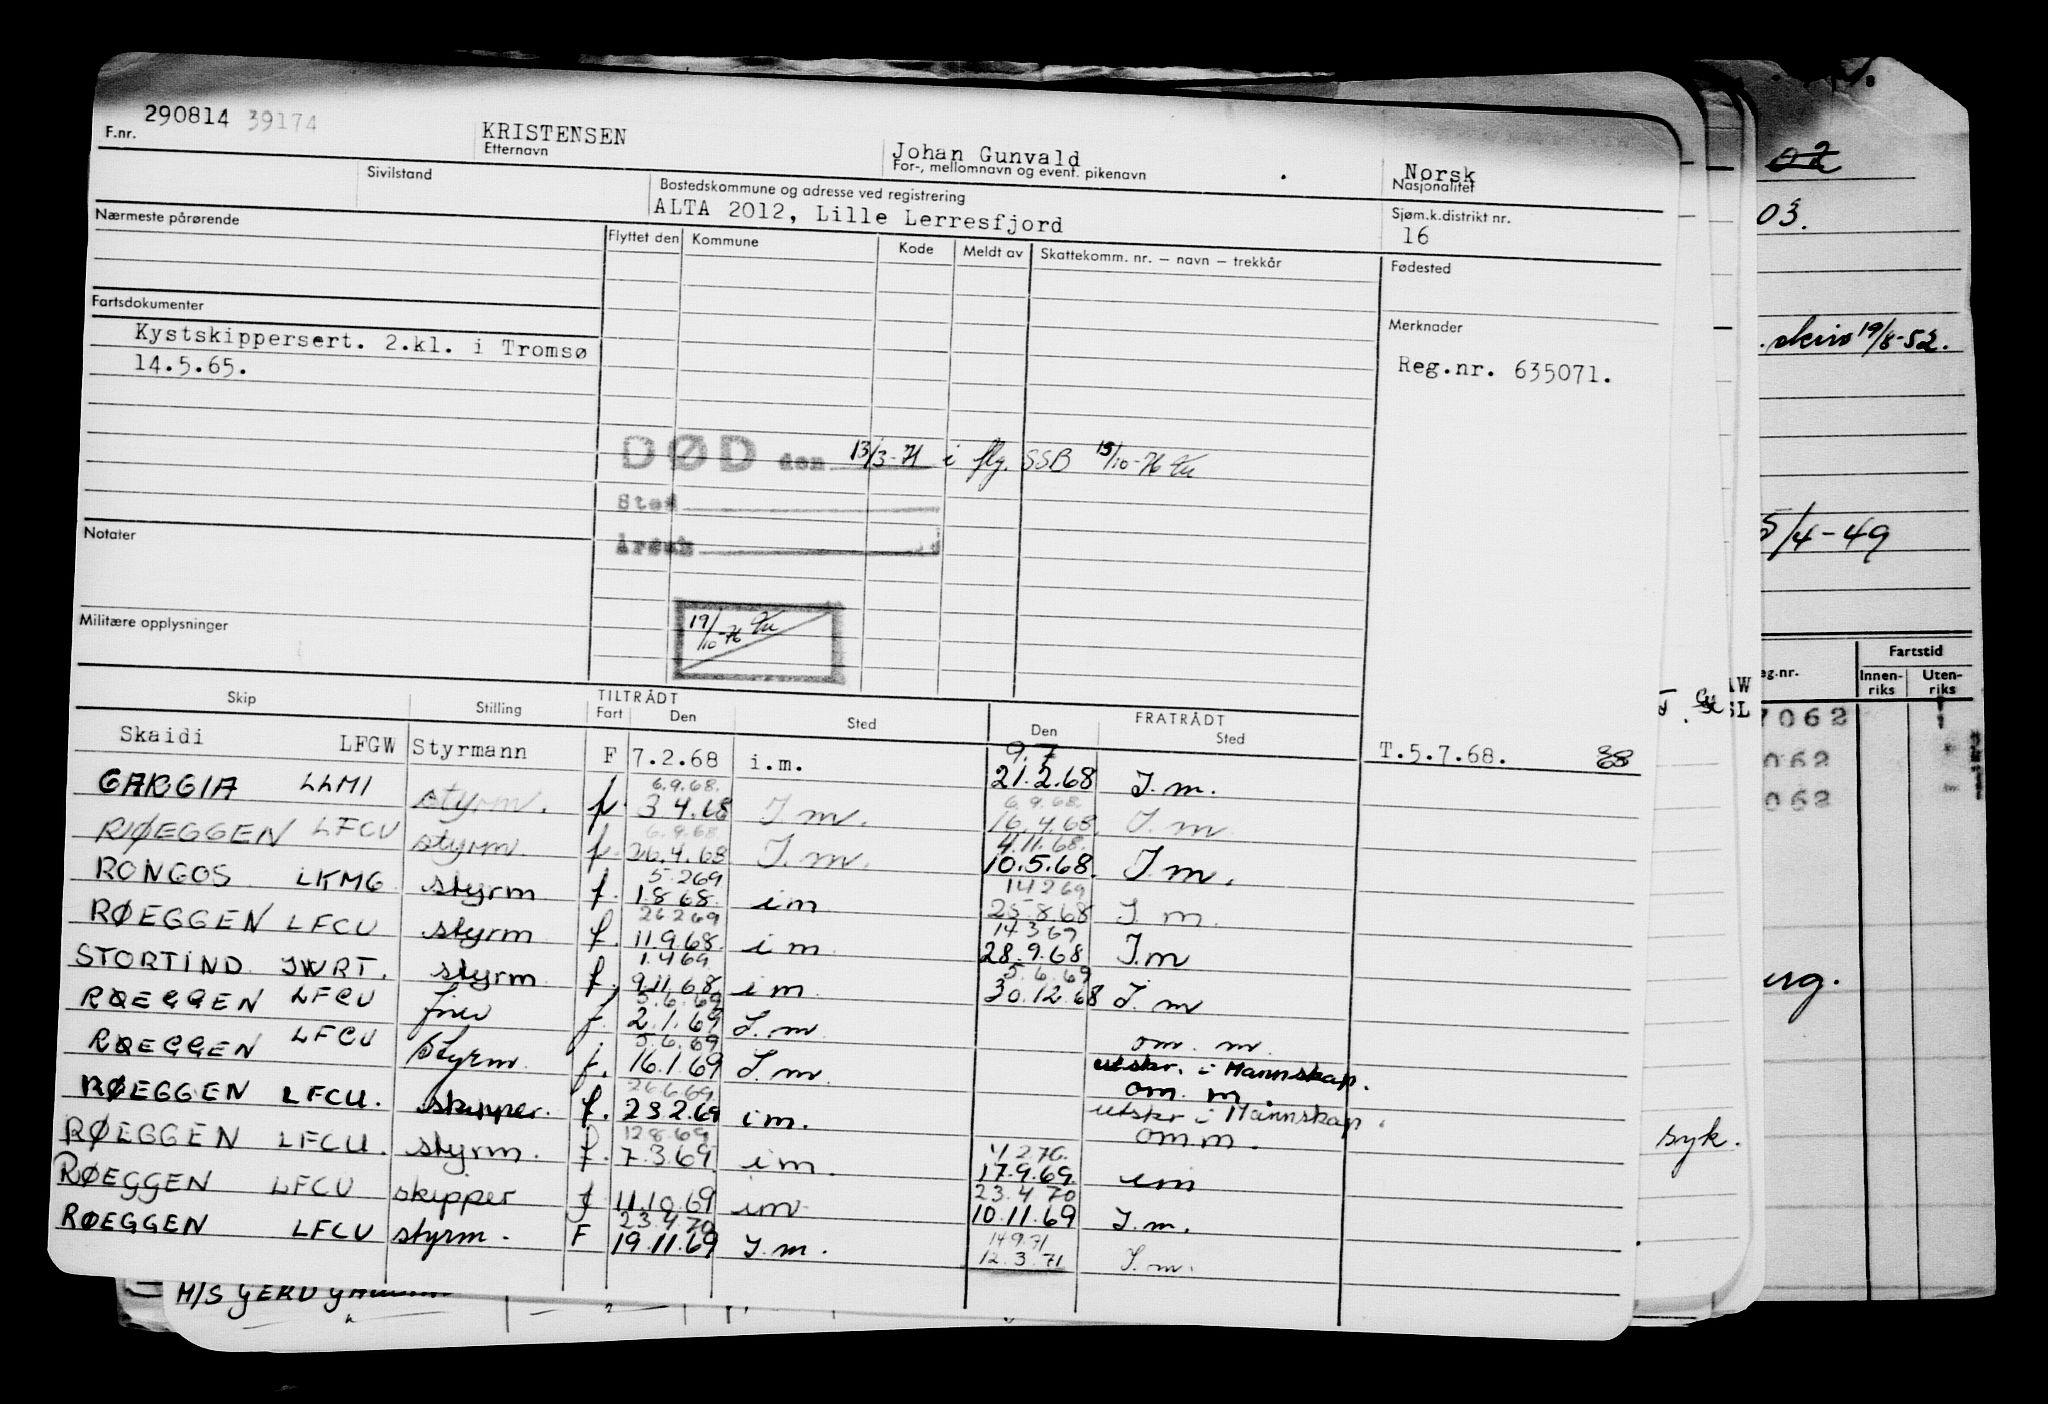 290814 39174
F.nr.
KRISTENSEN
Etternavn
Johan Gunvald
For-, mellomnavn og event. pikenavn
Norsk
Nasjonalitet
Sivilstand
Bostedskommune og adresse ved registrering
ALTA 2012, Lille Lerresfjord
Sjøm.k.distrikt nr.
16
Nærmeste pårørende
Flyttet den Kommune Kode Meldt av Skattekomm. nr. — navn — trekkår
Fødested
Fartsdokumenter
Kystskippersert. 2.kl. i Tromsø
14.5.65.
Merknader
Reg.nr. 635071.
DØD den 13/3-71 i flg. SSB 15/10-76
Sted
Årsak
Notater
19/10-76
Militære opplysninger
Skip Stilling TILTRÅDT Fart Den Sted FRATRÅDT Den Sted
Skaidi LFGW Styrmann F 7.2.68 i.m. 9.7 21.2.68 I.m. T.5.7.68.
GARGIA LLMI styrm. f. 6.9.68. 3.4.68 I m. 6.9.68. 16.4.68. I.m
RØEGGEN LFCU styrm. f. 6.9.68 26.4.68 I.m. 4.11.68. 10.5.68. I.m.
RONGOS LKMG styrm f. 5.269 1.8.68. im 14269 25.8.68 I.m.
RØEGGEN LFCU styrm f. 26269 11.9.68. im 14369 28.9.68 I.m
STORTIND JWRT. styrm f. 1.469 9.11.68 im 5.6.69 30.12.68 I.m
RØEGGEN LFCU f. 5.6.69 2.1.69 I.m om. m.
RØEGGEN LFCU Styrm f. 5.6.69 16.1.69 I.m utskr. i Mannskap. om. m.
RØEGGEN LFCU. skipper. f. 26.6.69 23.2.69 im. utskr i Mannskap. omm.
RØEGGEN LFCU. styrm. f. 12869 7.3.69. im. 4270. 17.9.69 im
RØEGGEN LFCU skipper f 11.10.69 im 23.4 70 10.11.69 I.m.
RØEGGEN LFCU styrm. F 23.4.70 19.11.69 I.m. 14971 12.3.71 I.m.
M/S GERD
02
03.
19/8-52.
5/4-49
Fartstid
eg.nr. Innen-riks Uten-riks
7062
062
062
syk.